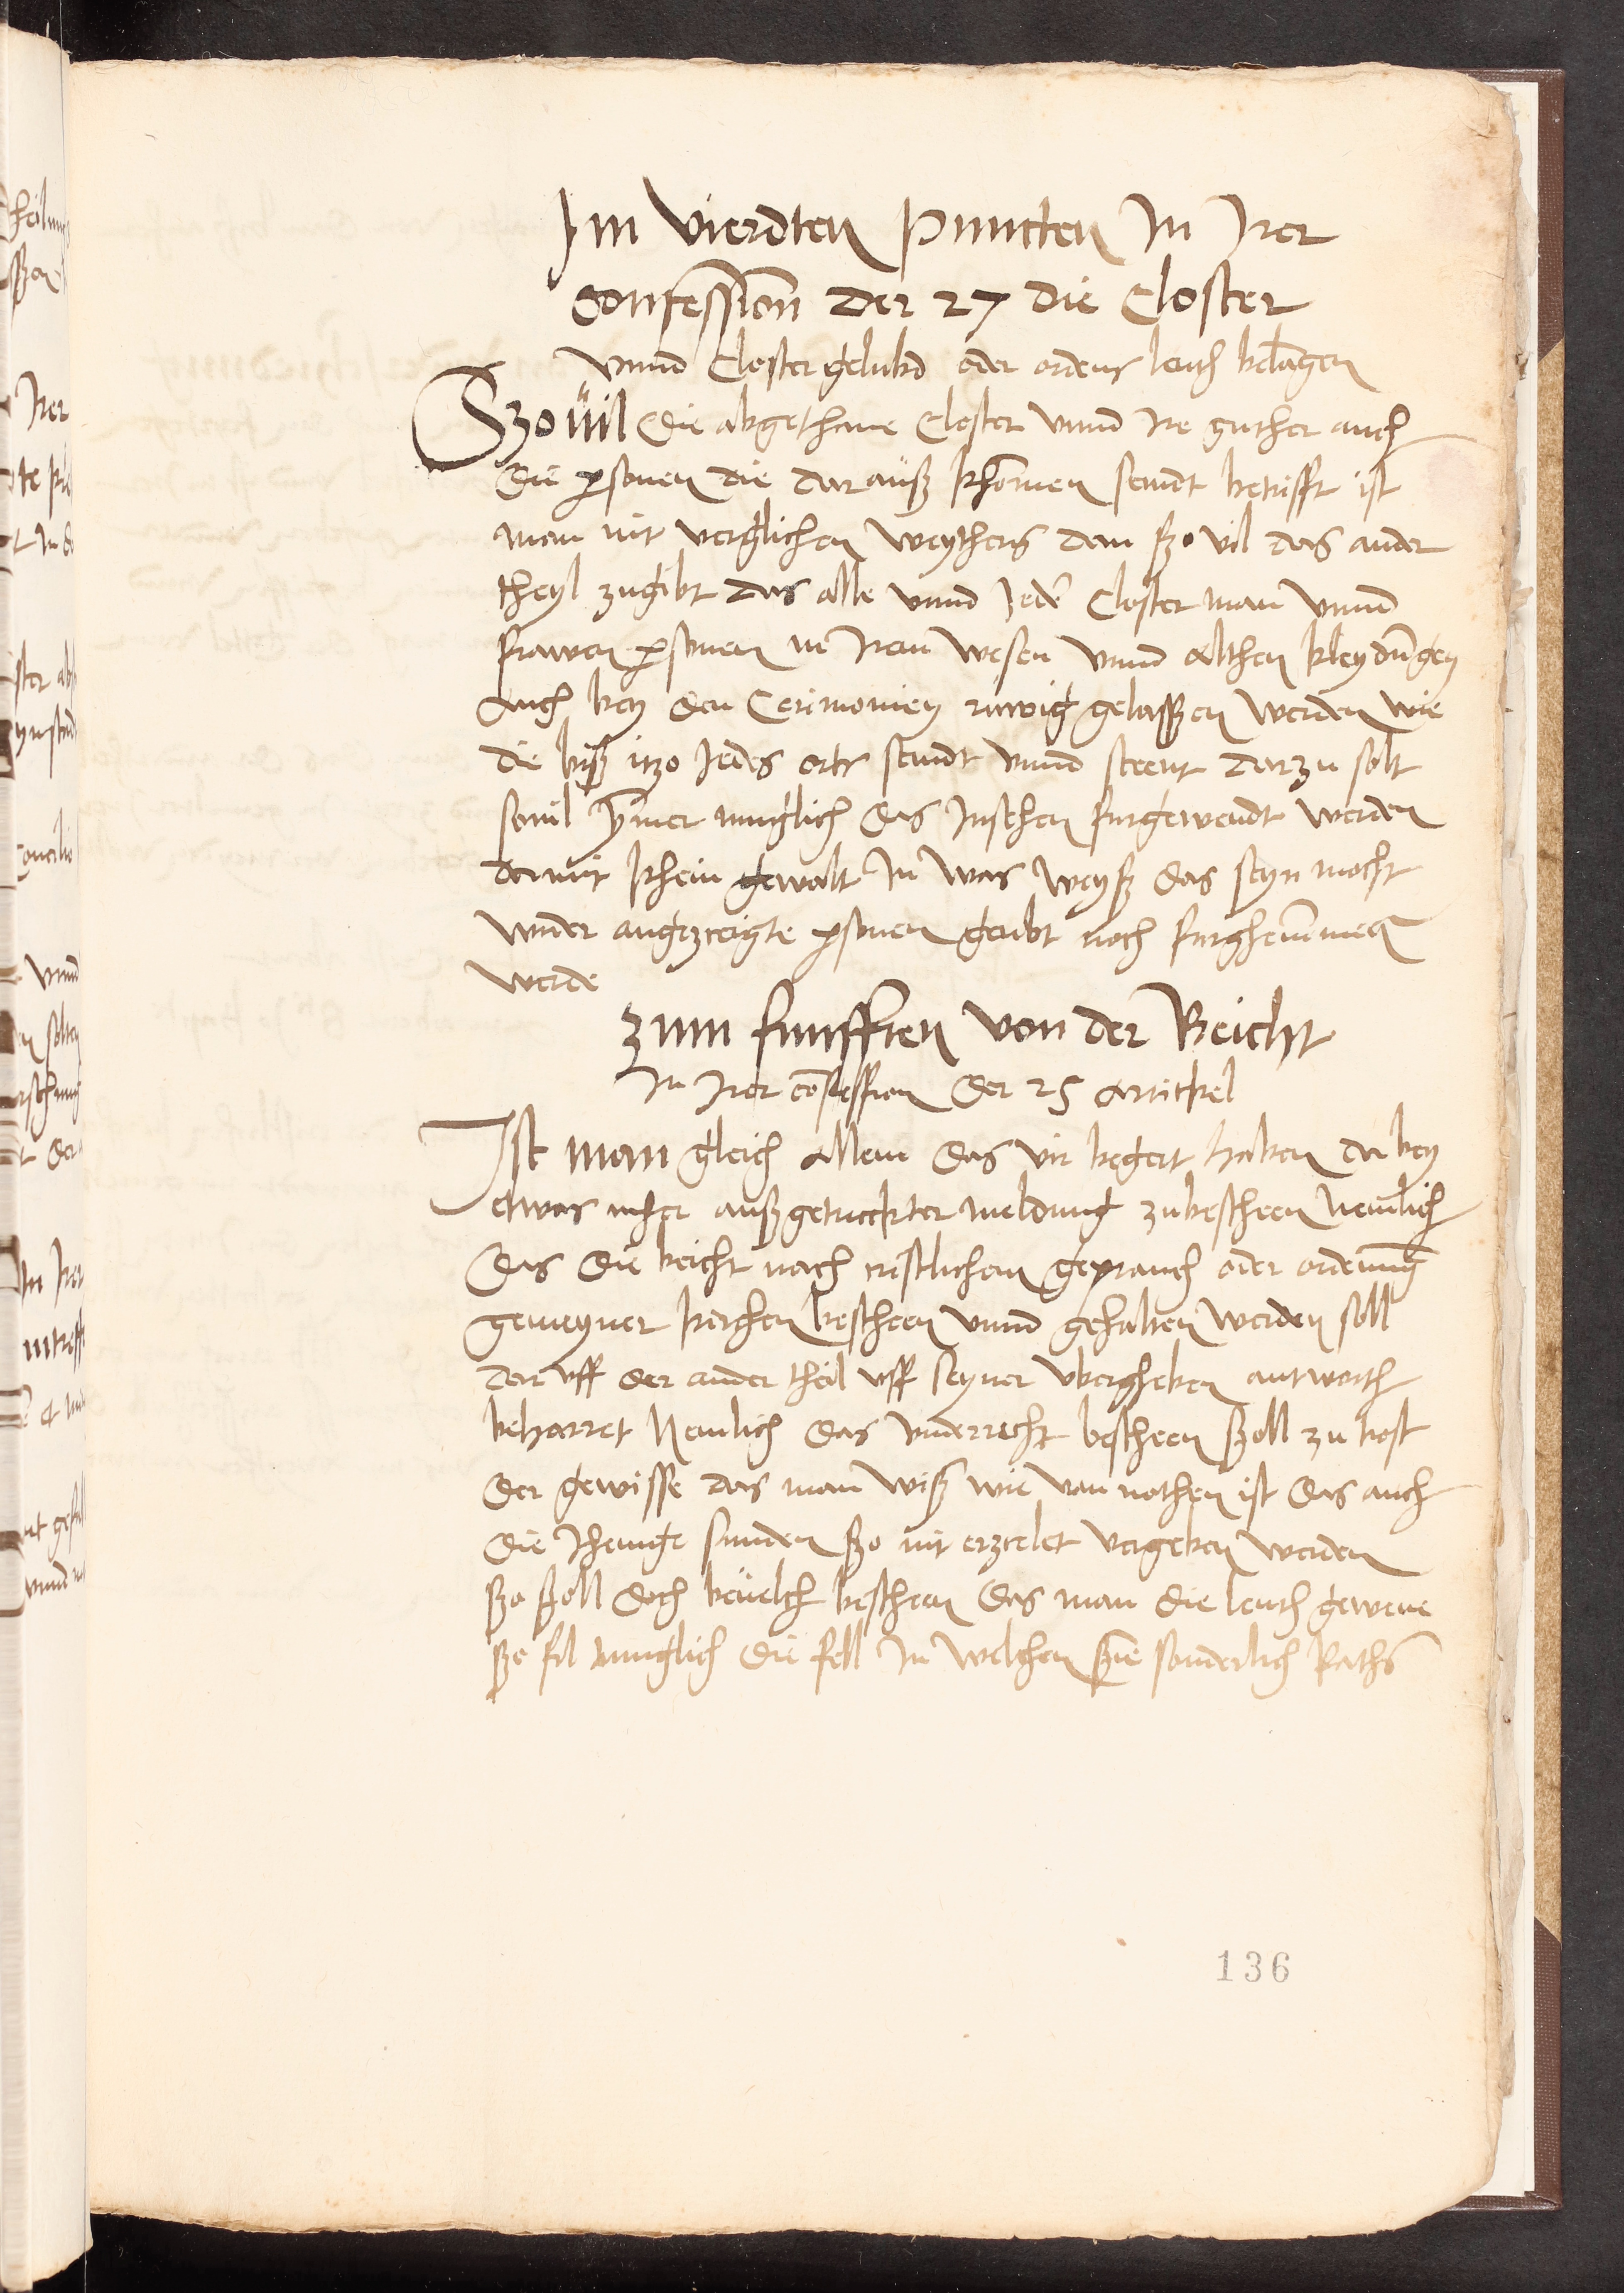 Im vierdten Puncten In Irer
Confession der 27 die Closter
vnnd Closter gelubd oder ordens leuth belangen
Szo vil die abgethane Closter vnnd Ire guther auch
die personen die darauß khomen seindt betrifft ist
man nit verglichen weythers dan szo vil das ander
theyl zugibt das alle vnnd Jede Closter man vnnd
frawen personen in Iren wesen vnnd althen kleydungen
auch bey den Cerimonien ruwig gelasszen werden wie
die biß itzo Jedes orts seindt vnnd steent darzu solt
souil ymer muglich das Insehen furgewendt werden
damit khein gewalt In was weyß das seyn mocht
wider angezceigte personen geubt noch furghenummen
werde
Zum funfften von der Beicht
In Irer confession der 25 artickel
Ist man gleich allein das wir begert haben da bey
etwas mher außgetruckter meldung zubescheen nemlich
das die beicht nach cristlichem geprauch oder ordenung
gemeyner kirchen bescheen vnnd gehalten werden soll
dar vff der ander theil vff seyner vbergheben antworth
beharret Nemlich das vnderricht bescheen szoll zu trost
der gewisse das man wiß wie von nothen ist das auch
die Jhenige sunden szo nit erzcelet vergeben werden
szo szoll doch beuelch bescheen das man die leuth gewene
szo fil muglich die fell In welchen szie sonderlich Raths
136